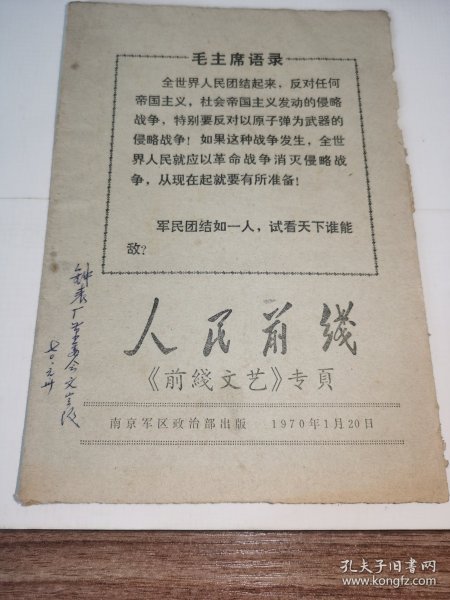 毛主席语录
全世界人民团结起来，反对任何
帝国主义，社会帝国主义发动的侵略
战争，特别要反对以原子弹为武器的
侵略战争！如果这种战争发生，全世
界人民就应以革命战争消灭侵略战
争，从现在起就要有所准备！
军民团结如一人，试看天下谁能
敌？
人民前綫
《前綫文艺》专頁
南京军区政治部出版 1970年1月20日
钟表厂
孔夫子旧书网
www.kongfz.com